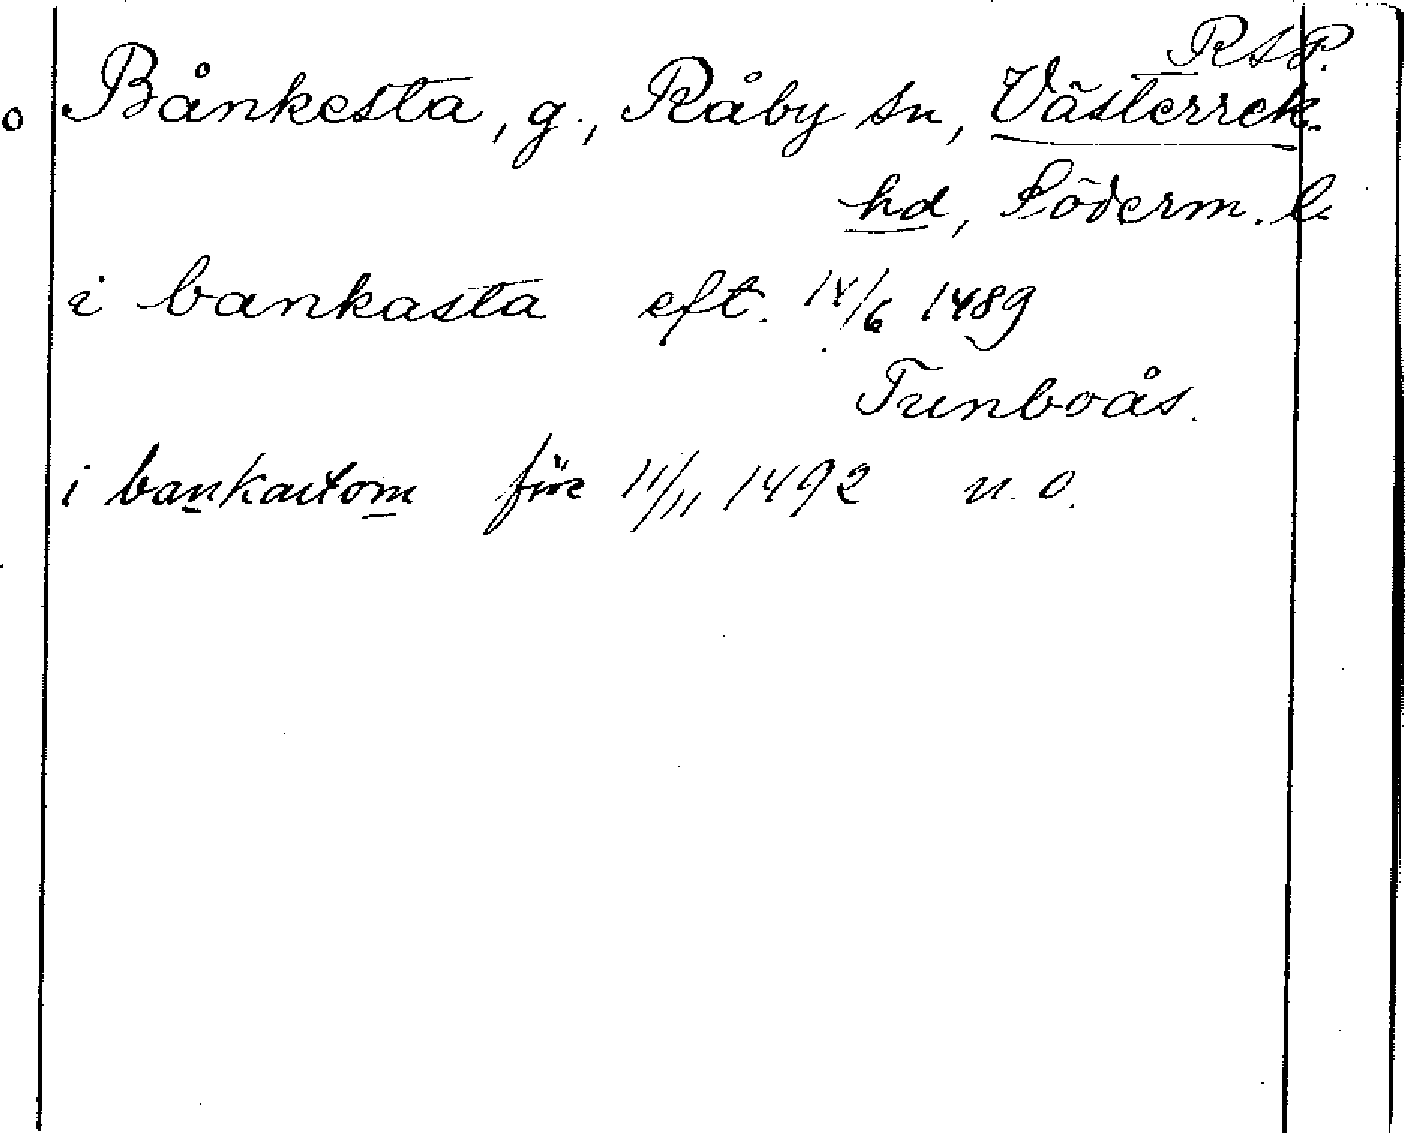 RAP.
o Bånkesta, g., Råby sn, Västerrek.
hd, Söderm. l.
i bankasta eft. 14/6 1489
Tunboås.
i bankastom före 11/11 1492 n. o.